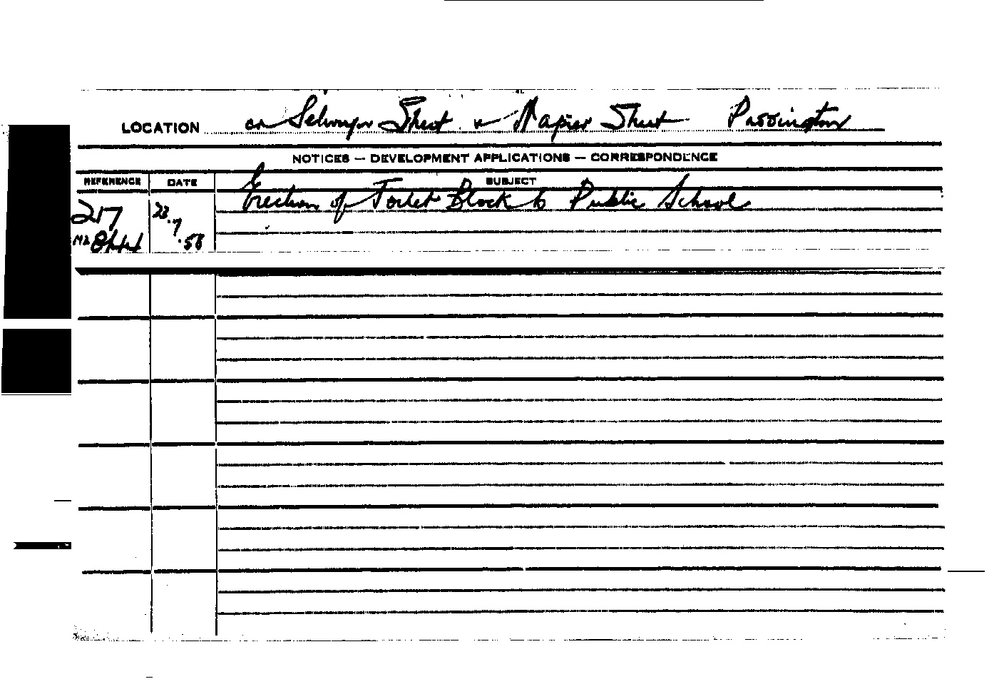 LOCATION cr Selwyn Street & Napier Street Paddington
NOTICES — DEVELOPMENT APPLICATIONS — CORRESPONDENCE
REFERENCE DATE SUBJECT
217 23.7.58 Erection of Toilet Block to Public School